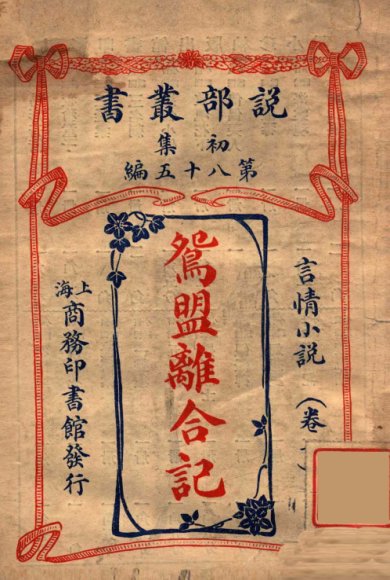 説部叢書
初集
第八十五編
言情小説（卷
鴛盟離合記
上海商務印書館發行